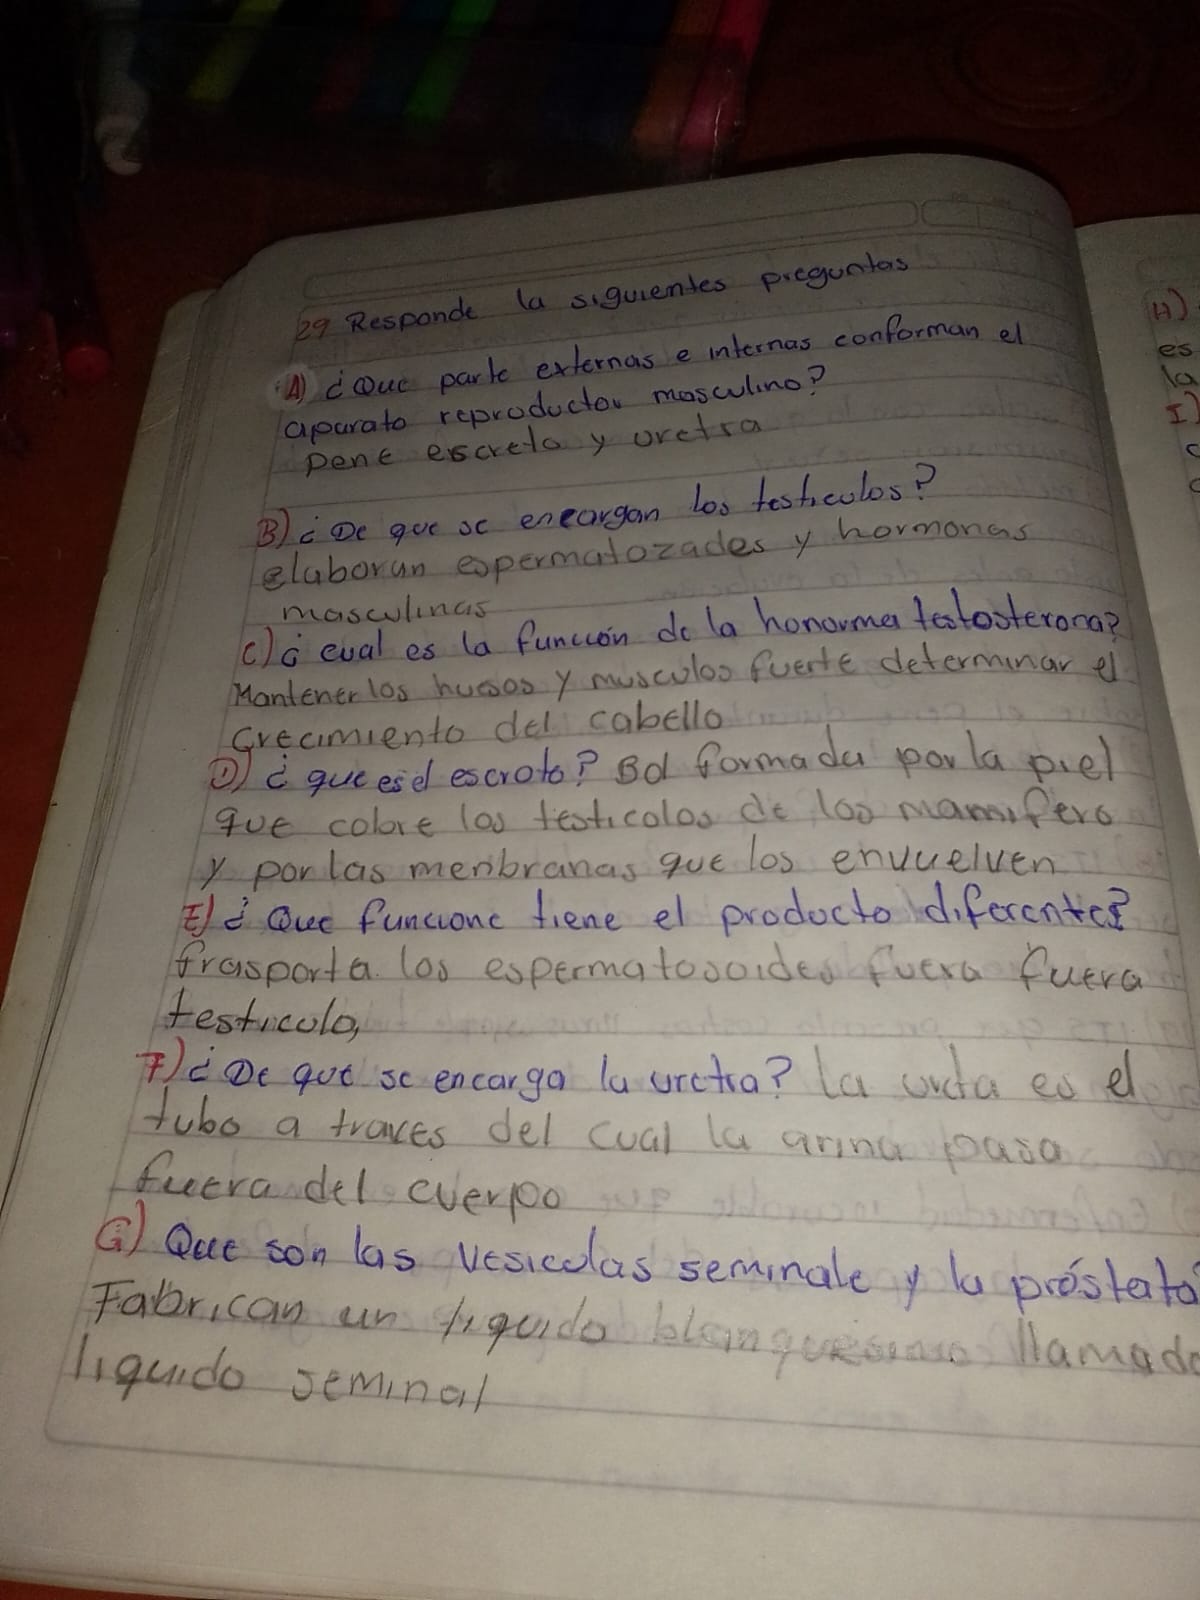 29 Responde la siguientes preguntas
A) ¿Que parte externas e internas conforman el
aparato reproductor masculino?
pene escreto y uretra
B) ¿De que se encargan los testiculos?
elaboran espermatozades y hormonas
masculinas
C) ¿cual es la función de la honorma testosterona?
Mantener los huesos y musculos fuerte determinar el
crecimiento del cabello
D) ¿que es el escroto? Bol formada por la piel
que cobre los testicolos de los mamifero
y por las menbranas que los envuelven
E) ¿Que funcione tiene el producto diferentes?
trasporta los espermatosoides fuera fuera
testiculo,
F) ¿De que se encarga la uretra? la ureta es el
tubo a traves del cual la arina pasa
fuera del cuerpo
G) Que son las vesiculas seminale y la próstata?
Fabrican un liquido llamado
liquido seminal
H)
es
la
I)